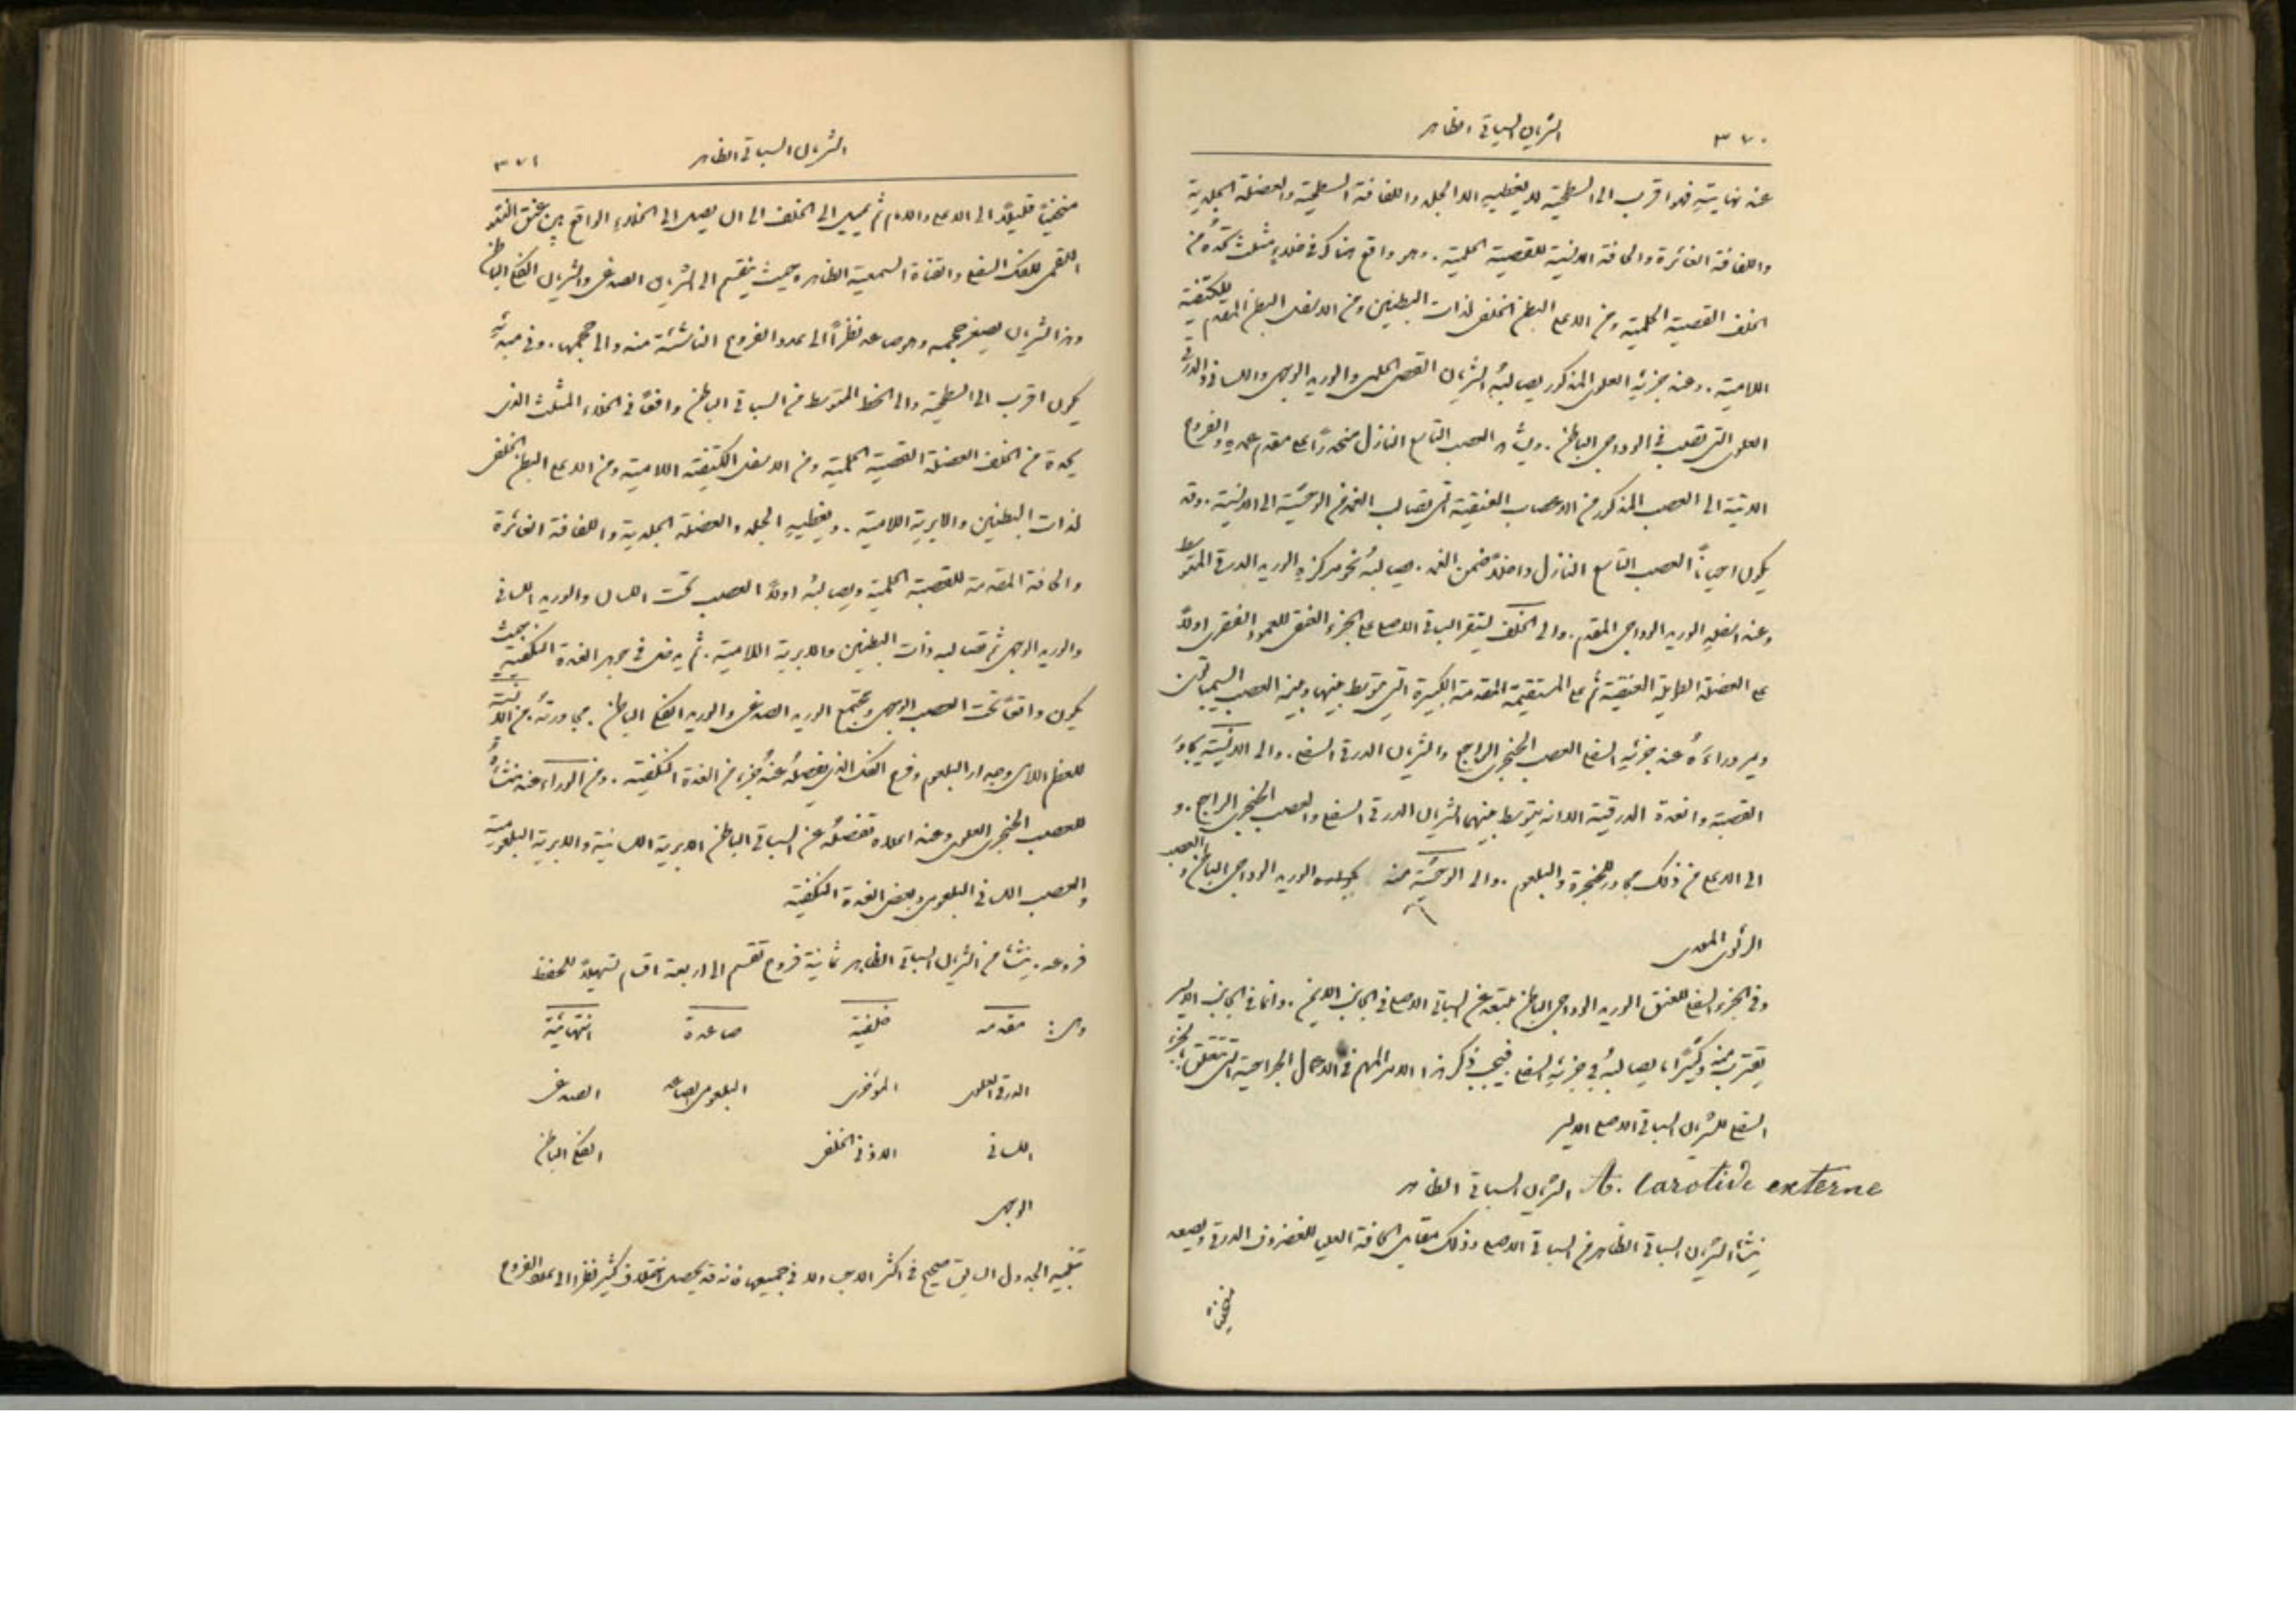 ٣٧٠
الشريان السباتي الظاهر
عند نهايته فهو اقرب الى السطحية لا يغطيه الا الجلد واللفافة السطحية والعضلة الجلدية
واللفافة الغائرة والحافة الانسية للقصية الحلمية . وهو واقع هناك في خلاء مثلث تحده من
الخلف القصية الحلمية ومن الاعلى البطن الخلفي لذات البطنين ومن الاسفل البطن المقدم للكتفية
اللامية . وعند جزئه العلوي المذكور يصالبه الشريان القصي الحلمي والوريد الوجهي واللساني والدرقي
العلوي التي تصب في الوداجي الباطن . العصب التاسع النازل منحدراً على مقدم غمده والفروع
الآتية الى العصب المذكور من الاعصاب العنقية التي تصالب الغمد من الوحشية الى الانسية . وقد
يكون احياناً العصب التاسع النازل داخلاً ضمن الغمد . يصالبه نحو مركزه الوريد الدرقي المتوسط
وعند اسفله الوريد الوداجي المقدم . والى الخلف يستقر السباتي الاصلي على الجزء العنقي للعمود الفقري اولاً
على العضلة الطويلة العنقية ثم على المستقيمة المقدمة الكبيرة التي يتوسط بينها وبينه العصب السمباتي
ويمر وراءه عند جزئه السفلي العصب الحنجري الراجع والشريان الدرقي السفلي . والى الانسية يجاور
القصبة والغدة الدرقية اللذان يتوسط بينهما الشريان الدرقي السفلي والعصب الحنجري الراجع . و
الى الاعلى من ذلك مجاور للحنجرة والبلعوم . والى الوحشية منه الوريد الوداجي الباطن والعصب
الرئوي المعدي
وفي الجزء السفلي للعنق الوريد الوداجي الباطن يبتعد عن السباتي الاصلي في الجانب الايمن . وانما في الجانب الايسر
يقترب منه وكثيراً ما يصالبه في جزئه السفلي فيجب ذكر هذا الامر المهم في الاعمال الجراحية التي تتعلق بالجزء
السفلي للشريان السباتي الاصلي الايسر
A. Carotide externe الشريان السباتي الظاهر
ينشأ الشريان السباتي الظاهر من السباتي الاصلي وذلك مقابل الحافة العليا للغضروف الدرقي ويصعد
منحنياً
الشريان السباتي الظاهر
٣٧١
منحنياً قليلاً الى الاعلى والامام ثم يميل الى الخلف الى ان يصل الى الخلاء الواقع بين عنق النتو
اللقمي للفك السفلي والقناة السمعية الظاهرة حيث ينقسم الى الشريان الصدغي والشريان الفكي الباطن
وهذا الشريان يصغر حجمه وهو صاعد نظراً الى عدد الفروع الناشئة منه والى حجمها . وفي مبدئه
يكون اقرب الى السطحية والى الخط المتوسط من السباتي الباطن واقعاً في الخلاء المثلث الذي
يحده من الخلف العضلة القصية الحلمية ومن الاسفل الكتفية اللامية ومن الاعلى البطن الخلفي
لذات البطنين والابرية اللامية . ويغطيه الجلد والعضلة الجلدية واللفافة الغائرة
والحافة المقدمة للقصية الحلمية ويصالبه اولاً العصب تحت اللسان والوريد اللساني
والوريد الوجهي ثم تصالبه ذات البطنين والابرية اللامية . ثم يدخل في جوهر الغدة النكفية حيث
يكون واقعاً تحت العصب الوجهي ومجتمع الوريد الصدغي والوريد الفكي الباطن . مجاورته من الانسية
للعظم اللامي وجدار البلعوم وفرع الفك الذي يفصله عنه جزء من الغدة النكفية . ومن الوراء عند منشأه
للعصب الحنجري العلوي وعند اعلاه تفصله عن السباتي الباطن الابرية اللسانية والابرية البلعومية
والعصب اللساني البلعومي وبعض الغدة النكفية
فروعه . ينشأ من الشريان السباتي الظاهر ثمانية فروع تقسم الى اربعة اقسام تسهيلاً للحفظ
وهي: مقدمة خلفية صاعدة انتهائية
الدرقي العلوي المؤخري البلعومي الصاعد الصدغي
اللساني الاذني الخلفي الفكي الباطن
الوجهي
تنبيه الجدول السابق صحيح في اكثر لا في جميعها فانه قد يحصل اختلاف كثير نظراً الى عدد الفروع